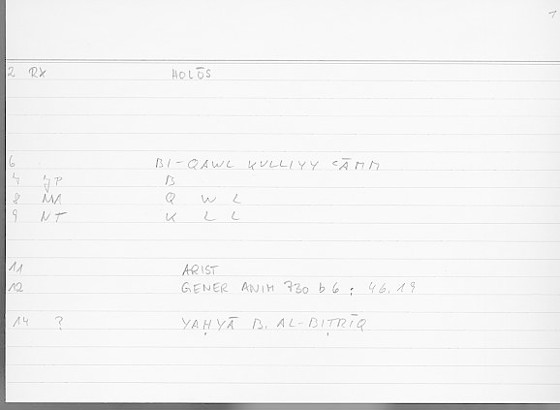 1
2 RX HOLŌS
6 BI-QAWL KULLIYY ʿĀMM
B
8 Q W L
9 NT K L L
11 ARIST
12 GENER ANIM 730 b 6 ; 46,19
14 ? YAḤYĀ B. AL-BIṬRĪQ